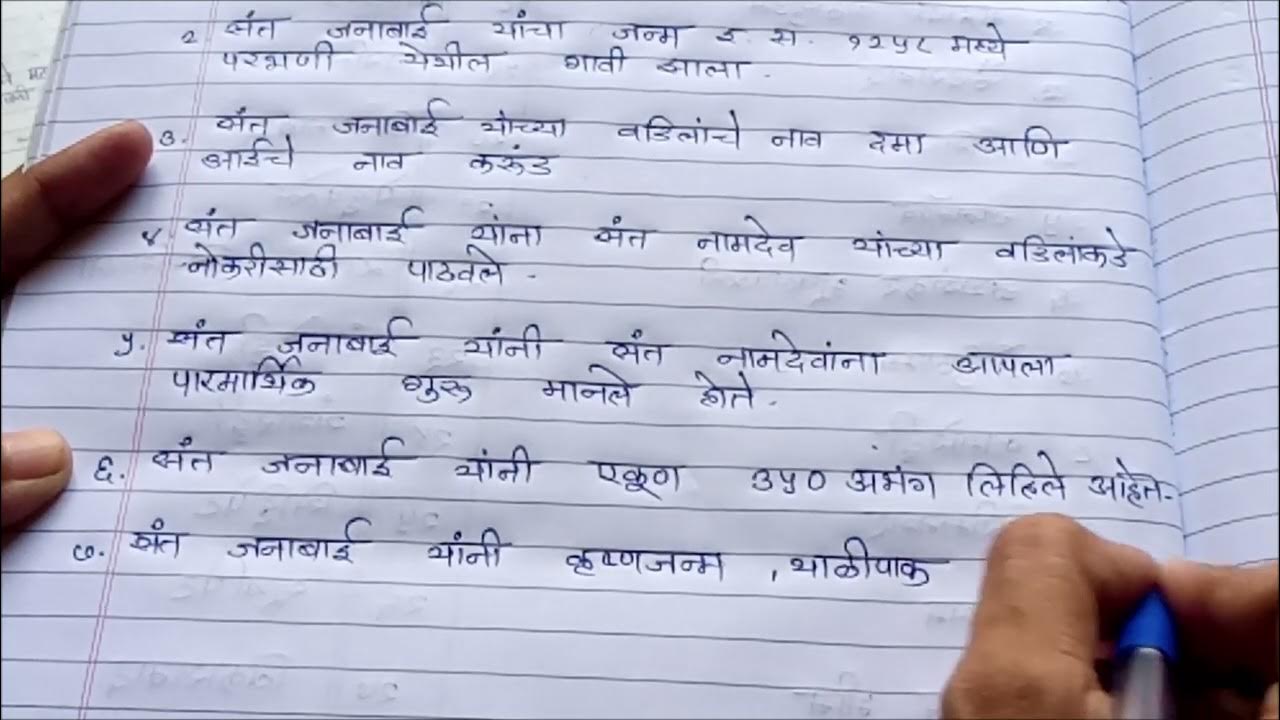 २ संत जनाबाई यांचा जन्म इ. स. १२५८ मध्ये
परभणी येथील गावी झाला.
३. संत जनाबाई यांच्या वडिलांचे नाव दमा आणि
आईचे नाव करुंड
४ संत जनाबाई यांना संत नामदेव यांच्या वडिलांकडे
नोकरीसाठी पाठवले.
५. संत जनाबाई यांनी संत नामदेवांना आपला
पारमार्थिक गुरू मानले होते.
६. संत जनाबाई यांनी एकूण ३५० अभंग लिहिले आहेत.
७. संत जनाबाई यांनी कृष्णजन्म, थाळीपाक